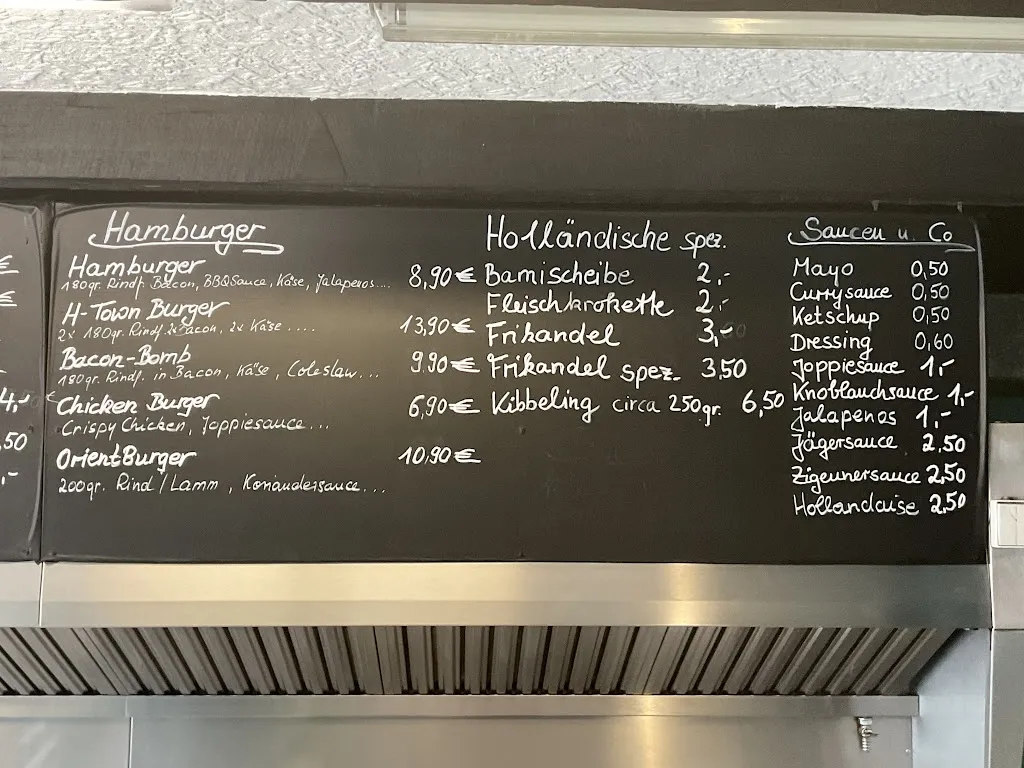 Hamburger
Hamburger 8,90€
180gr. Rindf. Bacon, BBQ Sauce, Käse, Jalapenos....
H-Town Burger 13,90€
2x 180gr. Rindf. 2x Bacon, 2x Käse ....
Bacon-Bomb 9.90€
180gr. Rindf. in Bacon, Käse, Coleslaw...
Chicken Burger 6,90€
Crispy Chicken, Joppiesauce...
Orient Burger 10,90€
200gr. Rind / Lamm, Koriandersauce...
Holländische spez.
Bamischeibe 2,-
Fleischkrokette 2,-
Frikandel 3,-
Frikandel spez. 3,50
Kibbeling circa 250gr. 6,50
Saucen u. Co
Mayo 0,50
Currysauce 0,50
Ketschup 0,50
Dressing 0,60
Joppiesauce 1,-
Knoblauchsauce 1,-
Jalapenos 1,-
Jägersauce 2,50
Zigeunersauce 2,50
Hollandaise 2,50
€
€
4,-
,50
,-